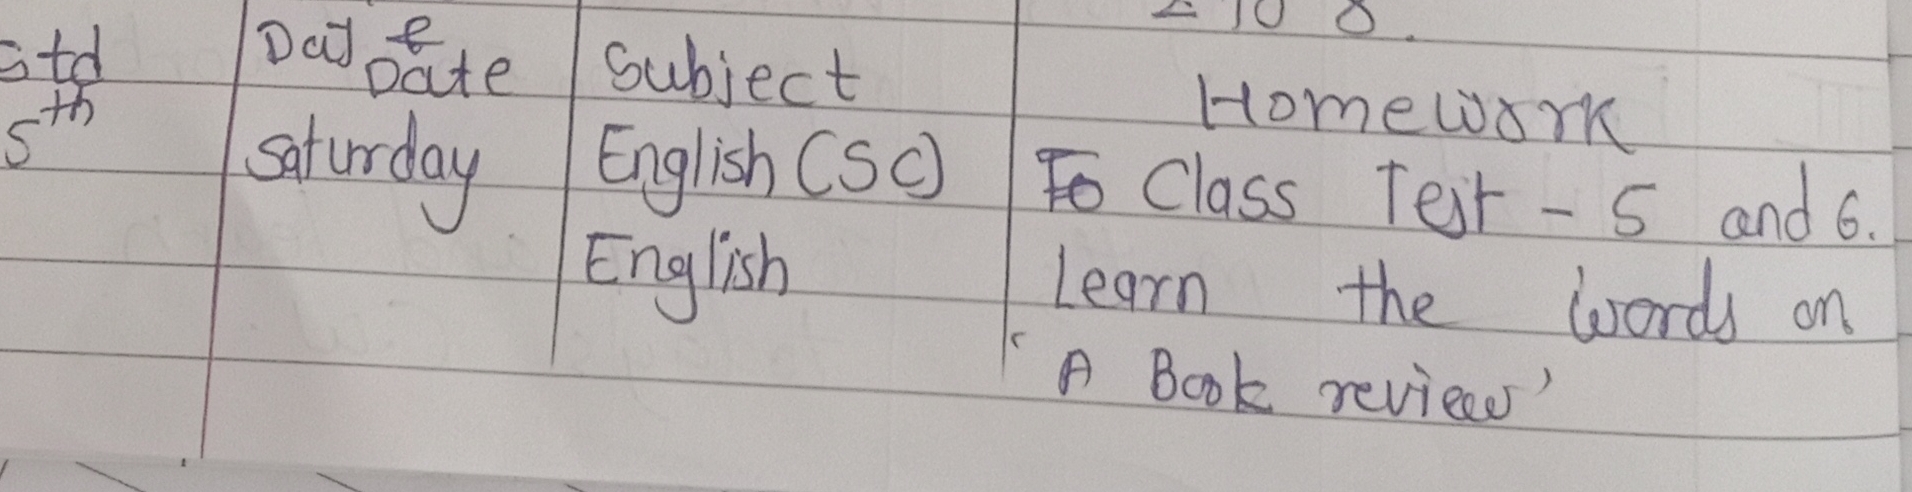 2 to 8.
Std Day & Date Subject Homework
5th Saturday English (SC) Class Test - 5 and 6.
English Learn the words on
'A Book review'